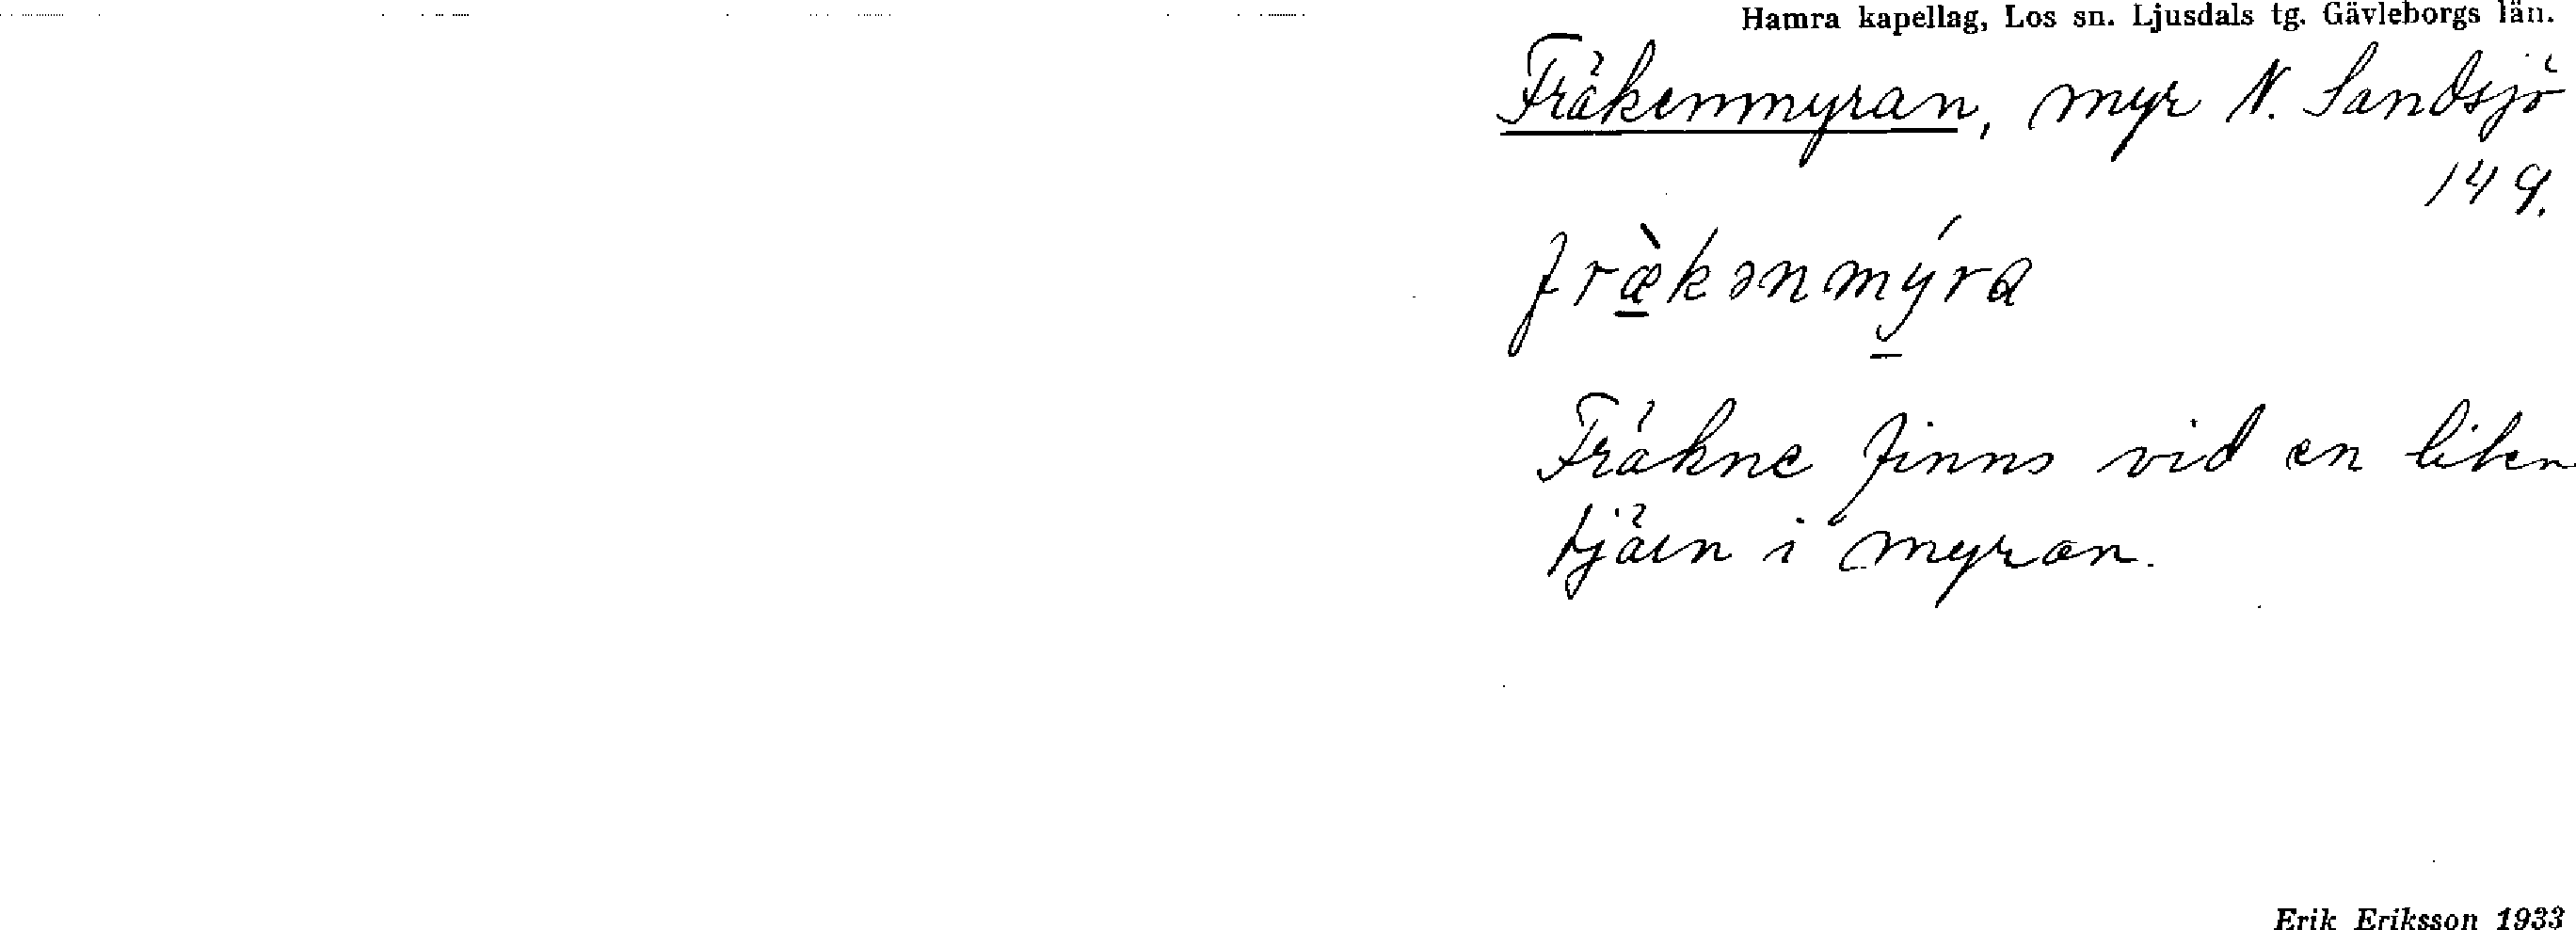 Hamra kapellag, Los sn. Ljusdals tg. Gävleborgs län.
Fräkenmyran, myr N. Sandsjö
149.
fræ̀kənmýra
Fräkne finns vid en liten
tjärn i myran.
Erik Eriksson 1933